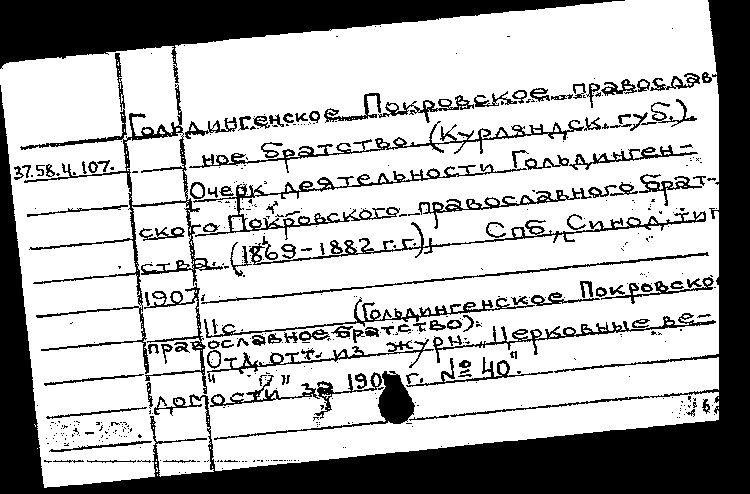 Гольдингенское Покровское православ-
37.58.4.107. ное братство. (Курляндск. губ.).
Очерк деятельности Гольдинген-
ского Покровского православного брат-
ства. (1869-1882 г.г.), Спб., Синод. тип
1907.
11с. (Гольдингенское Покровско
православное братство).
Отд. отт. из журн. „Церковные ве-
домости" за г. № 40".